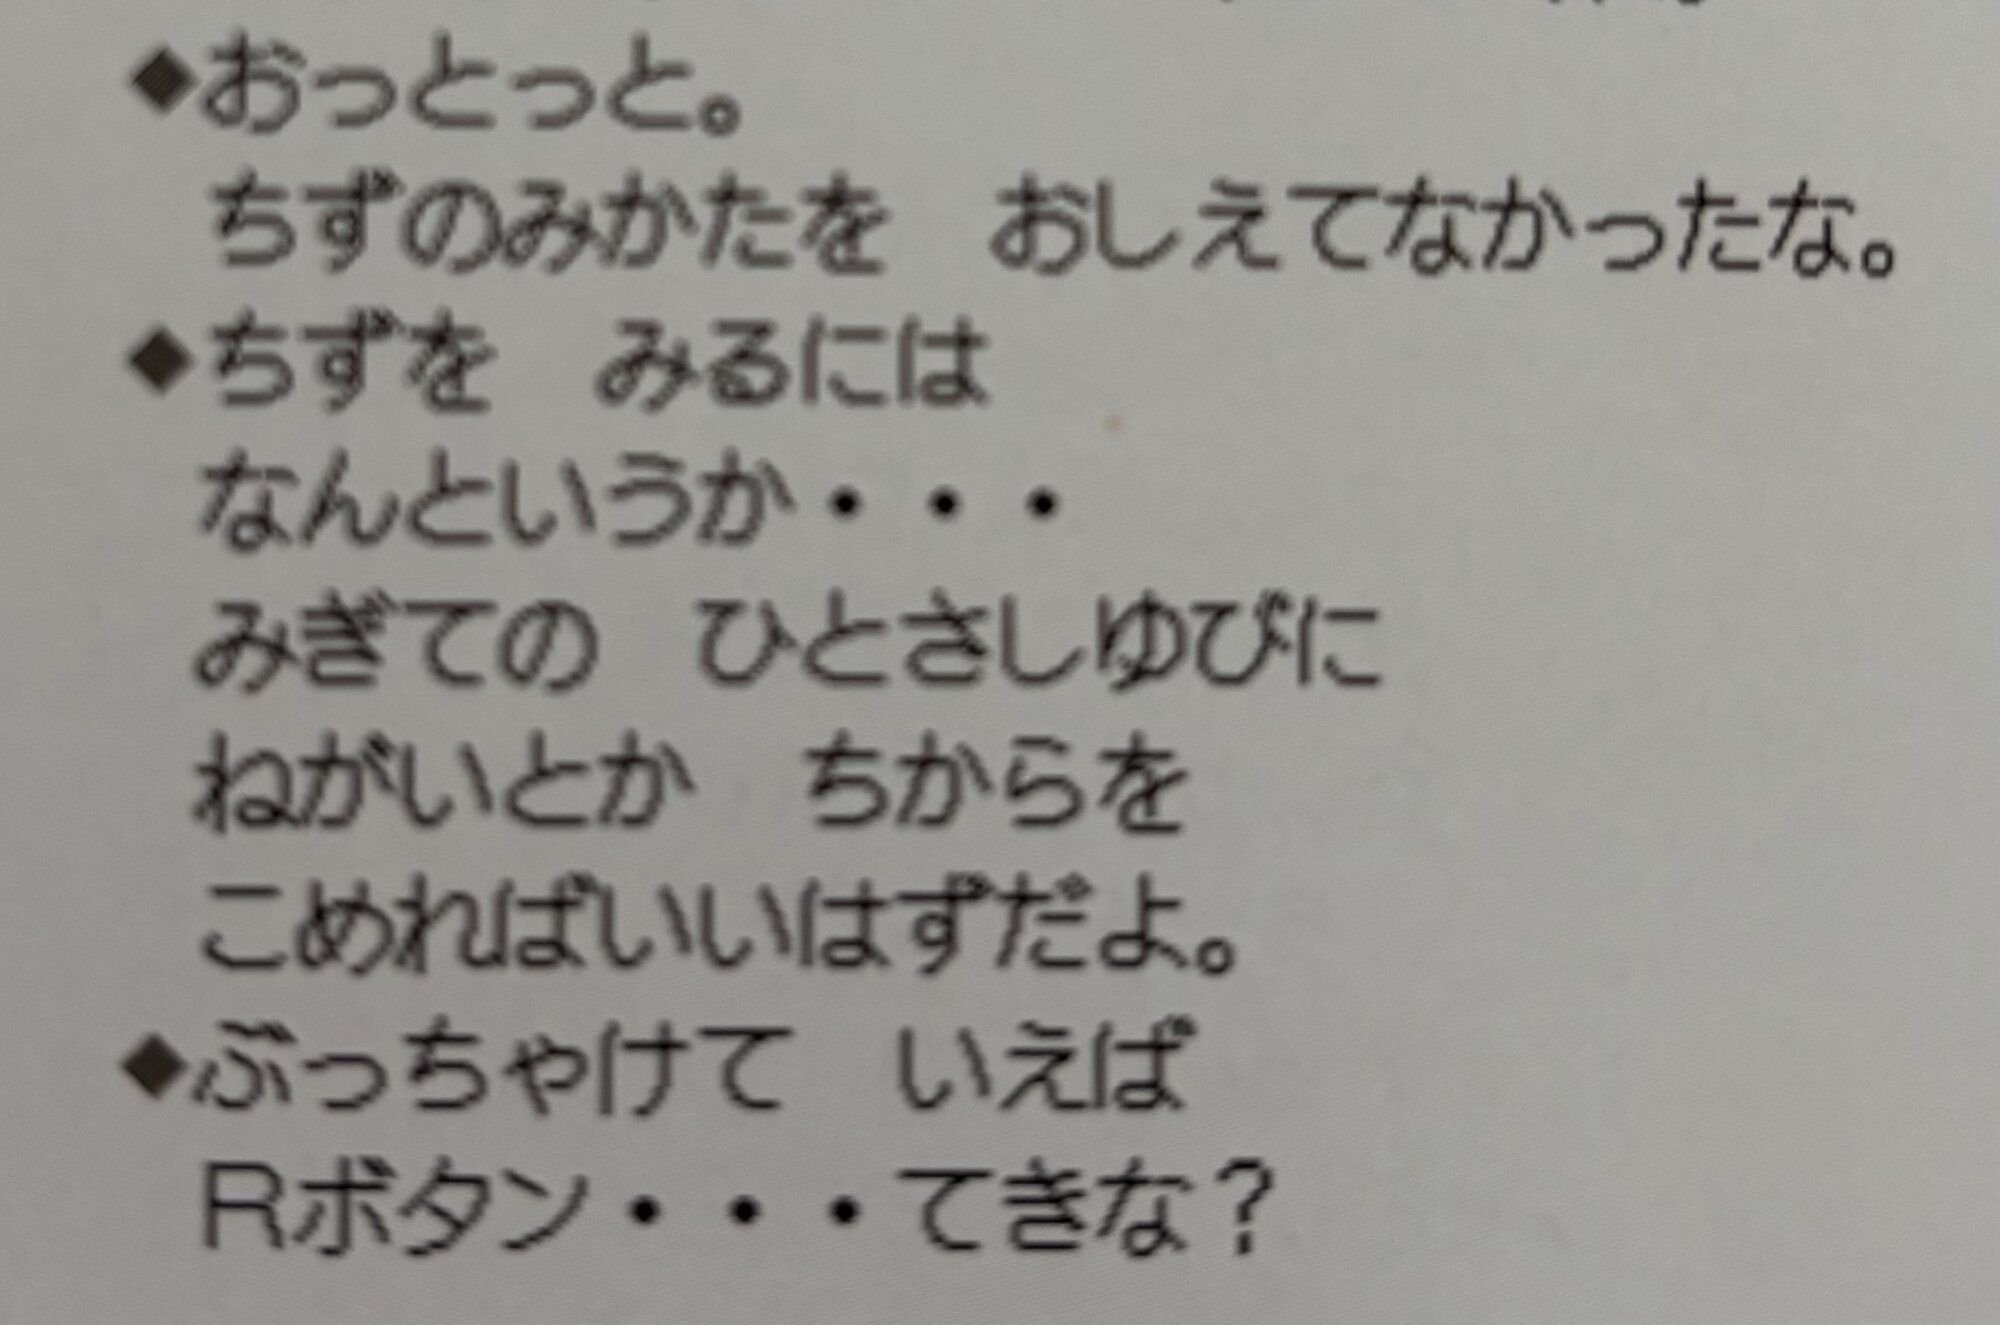 ◆おっとっと。
ちずのみかたを　おしえてなかったな。
◆ちずを　みるには
なんというか・・・
みぎての　ひとさしゆびに
ねがいとか　ちからを
こめればいいはずだよ。
◆ぶっちゃけて　いえば
Rボタン・・・てきな？